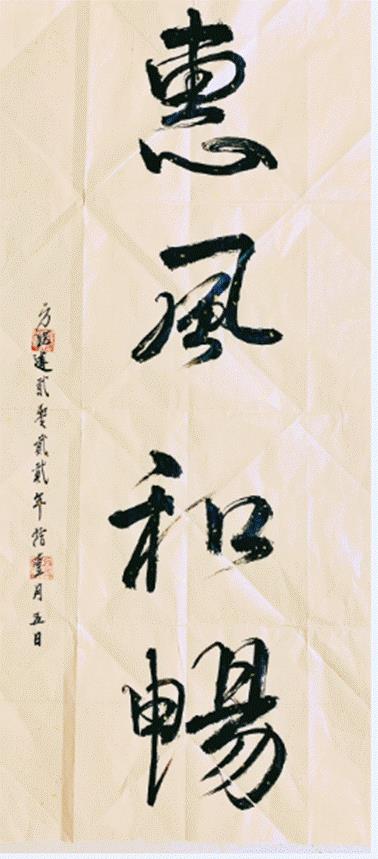 惠風和暢
方 建貳零貳貳年拾壹月五日